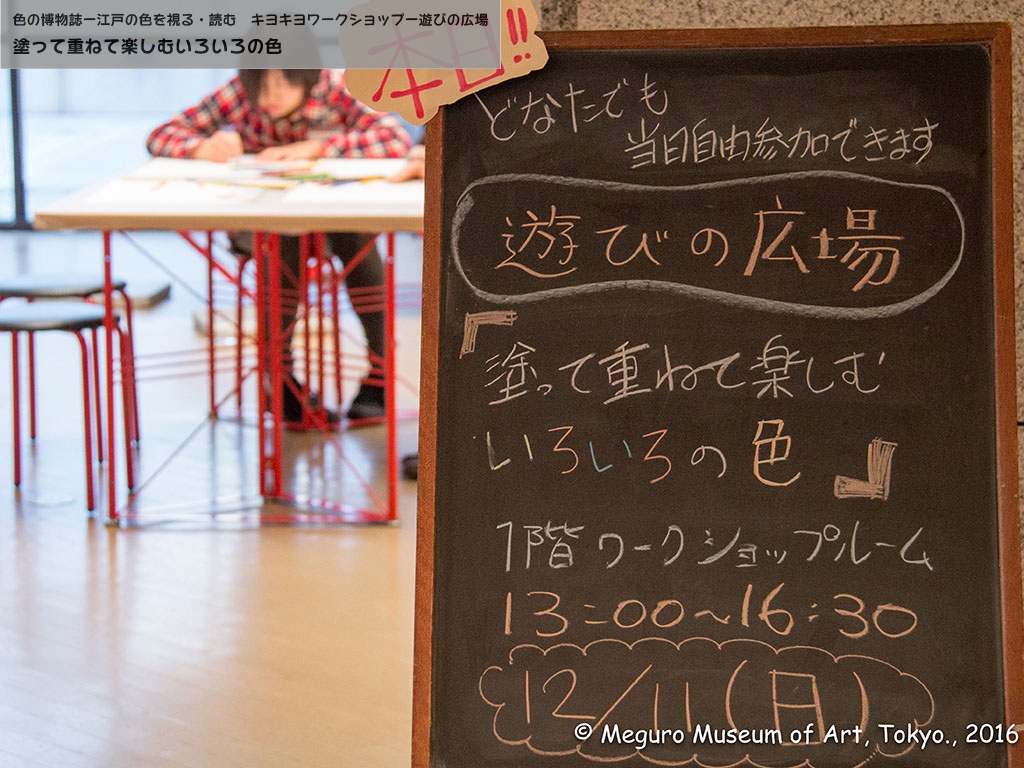 色の博物誌ー江戸の色を視る・読む キヨキヨワークショップー遊びの広場
塗って重ねて楽しむいろいろの色
本日!!
どなたでも
当日自由参加できます
遊びの広場
『塗って重ねて楽しむ
いろいろの色』
1階ワークショップルーム
13:00~16:30
12/11(日)
© Meguro Museum of Art, Tokyo., 2016